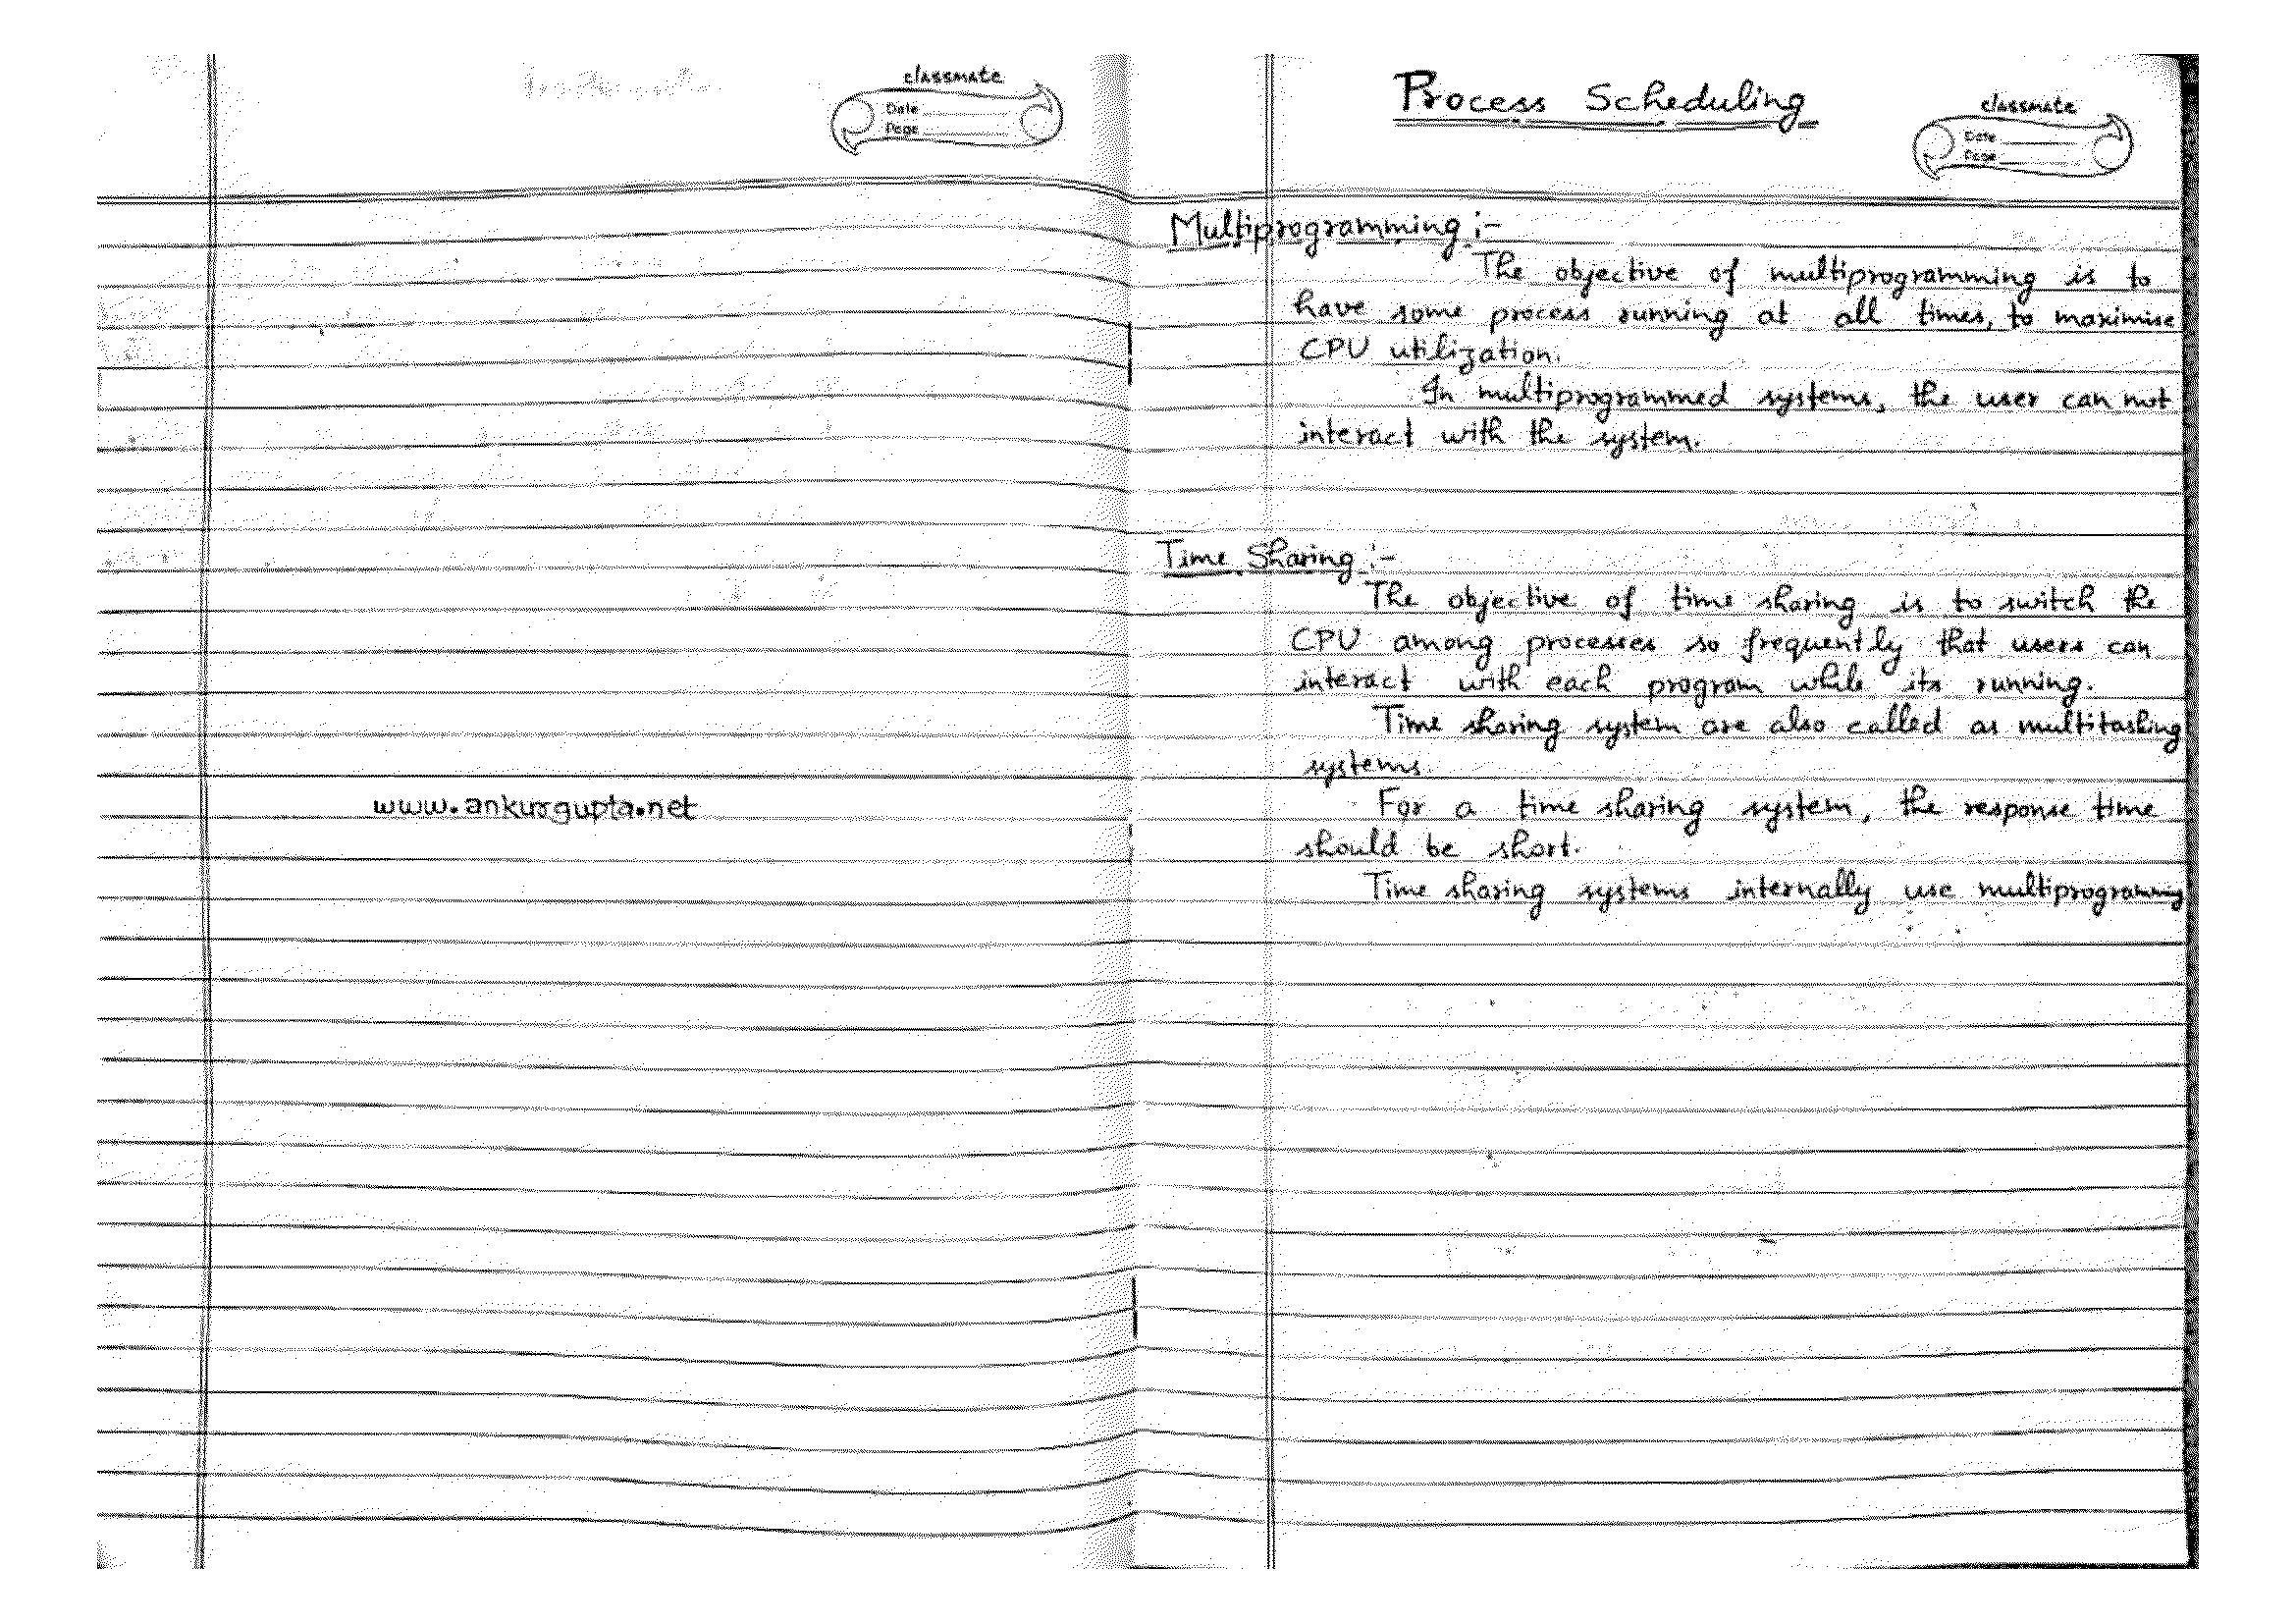 classmate
Date
Page
www.ankurgupta.net
Process Scheduling
classmate
Date
Page
Multiprogramming :-
The objective of multiprogramming is to
have some process running at all times, to maximise
CPU utilization.
In multiprogrammed systems, the user can not
interact with the system.
Time Sharing :-
The objective of time sharing is to switch the
CPU among processes so frequently that users can
interact with each program while its running.
Time sharing system are also called as multitasking
systems.
For a time sharing system, the response time
should be short.
Time sharing systems internally use multiprogramming